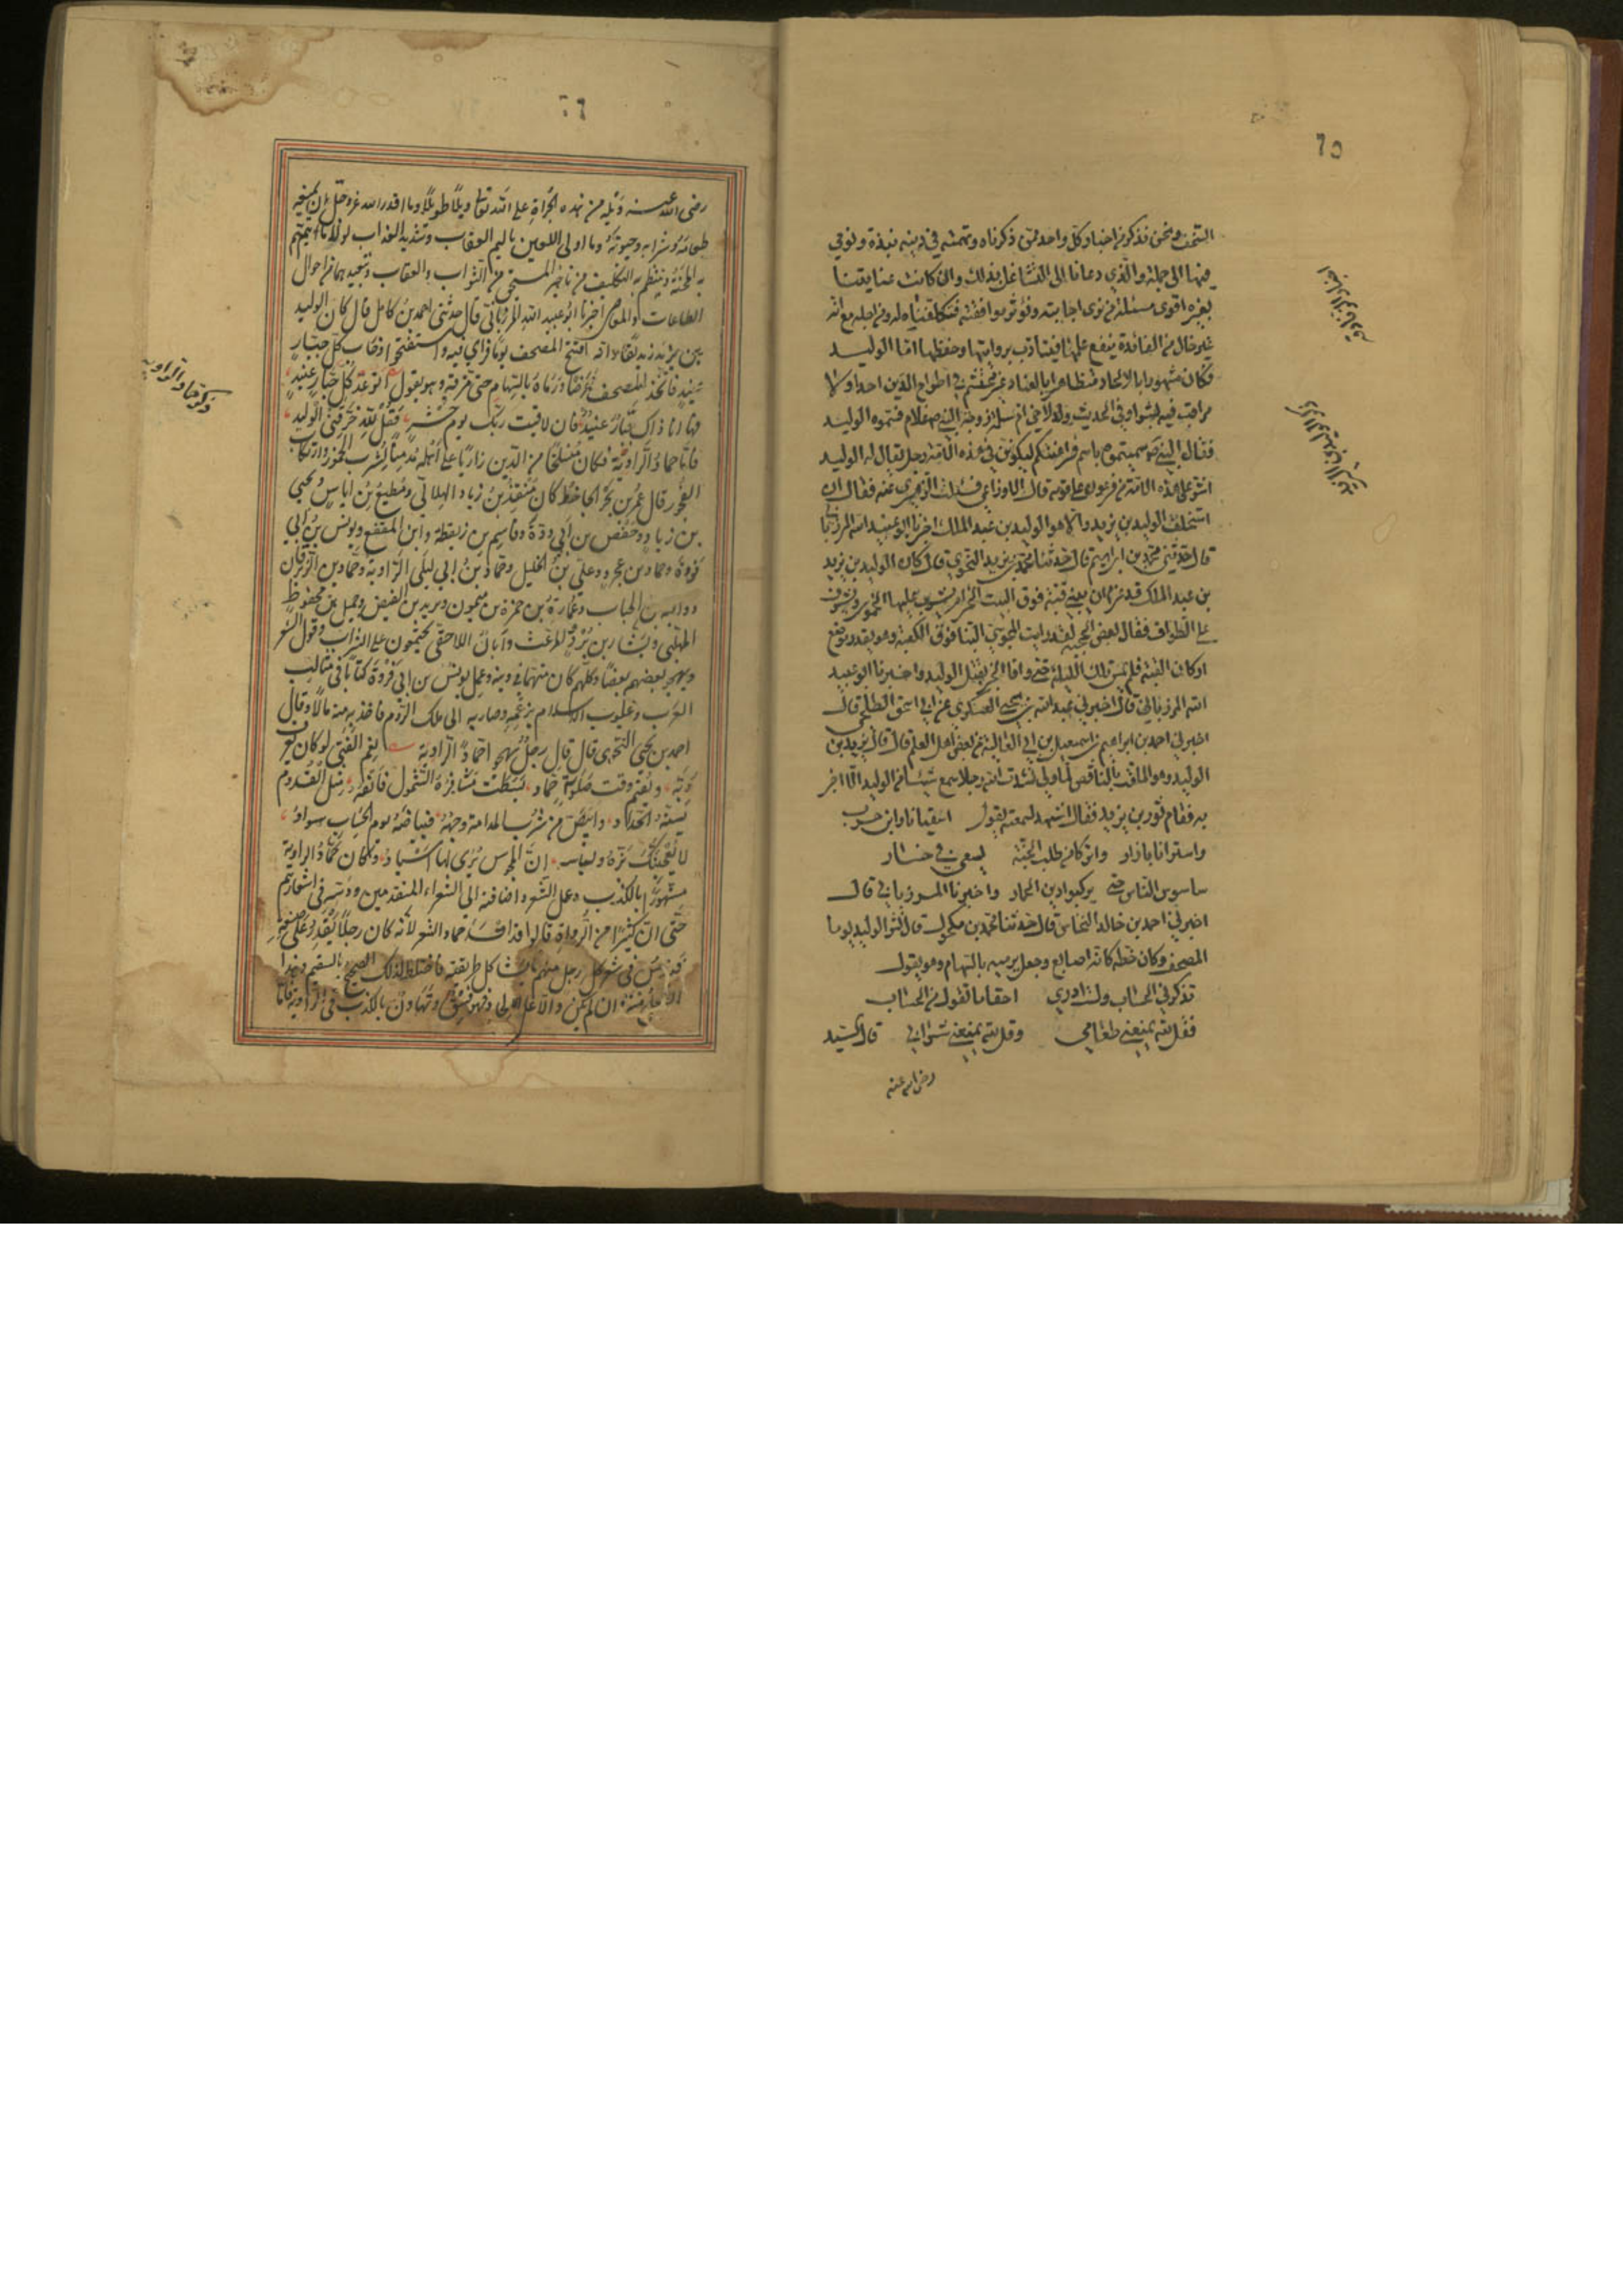 ٦٥
السخف ونحن نذكر من اخبار كل واحد ممن ذكرناه وتهمته في دينه نبذة ونومي
فيها الى جملة والذي دعانا الى التشاغل بذلك وان كانت عنايتنا
بغيره اقوى مسئلة من نرى اجابته ونوثر موافقته فتكلفناه له ومن اجله مع انه
غير خال من الفائدة ينفع علمها ويتأدب بروايتها وحفظها اما الوليد
فكان مشهورا بالالحاد متظاهرا بالعناد غير محتشم في اطراح الدين احدا ولا
مراقب فيه بشرا وفي الحديث ولد لاخي ام سلمة زوجة النبي ص غلام فسموه الوليد
فقال النبي ص سميتموه باسم فراعنتكم ليكونن في هذه الامة رجل يقال له الوليد
اشر على هذه الامة من فرعون على قومه قال الاوزاعي فسئلت الزهري عنه فقال ان
استخلف الوليد بن يزيد والا هو الوليد بن عبد الملك اخبرنا ابو عبيد الله المرزباني
قال حدثني محمد بن ابراهيم قال حدثنا محمد بن يزيد النحوي قال كان الوليد بن يزيد
بن عبد الملك قد عزم ان يبني قبة فوق البيت الحرام يشرب عليها الخمور ويشرف
على الطواف فقال بعض الحجبة لقد رايت المجوسي البنا فوق الكعبة وهو يقدر موضع
اركان القبة فلم يمس تلك الليلة حتى وافا الخبر بقتل الوليد واخبرنا ابو عبيد
الله المرزباني قال اخبرني عبد الله بن يحيى العسكري عن ابي اسحق الطلحي قال
اخبرني احمد بن ابراهيم بن اسمعيل بن ابي العالية عن بعض اهل العلم قال قال يزيد بن
الوليد وهو الملقب بالناقص لما ولي نشدت الله رجلا سمع شيئا من الوليد الا اخبر
به فقام ثور بن يزيد فقال اشهد لسمعته يقول اسقياني وابن حرب
واسترانا بازار واتركا من طلب الجنة يسعى في خسار
ساسوس الناس حتى يركبوا دين الحمار واخبرنا المرزباني قال
اخبرني احمد بن خالد النحاس قال حدثنا محمد بن مكحول قال نشر الوليد يوما
المصحف وكان خطه كانه اصابع وجعل يرميه بالسهام وهو يقول
تذكرني الحساب ولست ادري احقا ما تقول من الحساب
فقل لله يمنعني طعامي وقل لله يمنعني شرابي قال السيد
رضي الله عنه
٦٦
رضى الله عنه ويله من هذه الجرأة على الله تعالى ويلا طويلا وما اقدر الله عز وجل ان يمنعه
طعامه وشرابه وحيوته وما اولى اللعين باليم العقاب وتشديد العذاب لولا ما يتم
به المحنة وينتظم به التكليف من تاخير المستحق من الثواب والعقاب وتبعيدهما من احوال
الطاعات والمعاصي اخبرنا ابو عبيد الله المرزباني قال حدثني احمد بن كامل قال كان الوليد
بن يزيد زنديقا وانه افتتح المصحف يوما فراى فيه واستفتحوا وخاب كل جبار
عنيد فاتخذ المصحف غرضا ورماه بالسهام حتى مزقه وهو يقول اتوعد كل جبار عنيد
فها انا ذاك جبار عنيد فان لاقيت ربك يوم حشر فقل لله خرقني الوليد
فاما حماد الراوية فكان منسلخا من الدين زاريا على اهله مدمنا لشرب الخمور وارتكاب
الفجور قال عمرو بن بحر الجاحظ كان منقذ بن زياد الهلالي ومطيع بن اياس ويحيى
بن زياد وحفص بن ابي ودة وقاسم بن زنقطة وابن المقفع ويونس بن ابي
فروة وحماد بن عجرد وعلي بن الخليل وحماد بن ابي ليلى الراوية وحماد بن الزبرقان
ووالبة بن الحباب وعمارة بن حمزة بن ميمون ويزيد بن الفيض وجميل بن محفوظ
المهلبي وبشار بن برد المرعث وابان اللاحقي يجتمعون على الشراب وقول الشعر
ويهجو بعضهم بعضا وكلهم كان متهما في دينه وعمل يونس بن ابي فروة كتابا في مثالب
العرب وعيوب الاسلام بزعمه وصار به الى ملك الروم فاخذ به منه مالا وقال
احمد بن يحيى النحوى قال قال رجل يهجو حماد الراوية نعم الفتى لو كان يعرف
ربه ويقيم وقت صلوته حماد بسطت مشافره الشمول فانفه مثل القدوم
يسنه الحداد وابيض من شرب المدامة وجهه فبياضه يوم الحساب سواد
لا يعجبنك بزه ولباسه ان المجوس يرى لها اسباد وكان حماد الراوية
مشهورا بالكذب وعمل الشعر واضافته الى الشعراء المتقدمين ودسه في اشعارهم
حتى ان كثيرا من الرواة قالوا قد افسد حماد الشعر لانه كان رجلا يقدر على صنعه
فيدس في شعر كل رجل منهم ما يشاكل طريقته فاختلط لذلك الصحيح بالسقيم وهذا
ان لم يكن دالا على الحاد فهو فسق وتهاون بالكذب في الرواية فاما
ذكر حماد الراوية